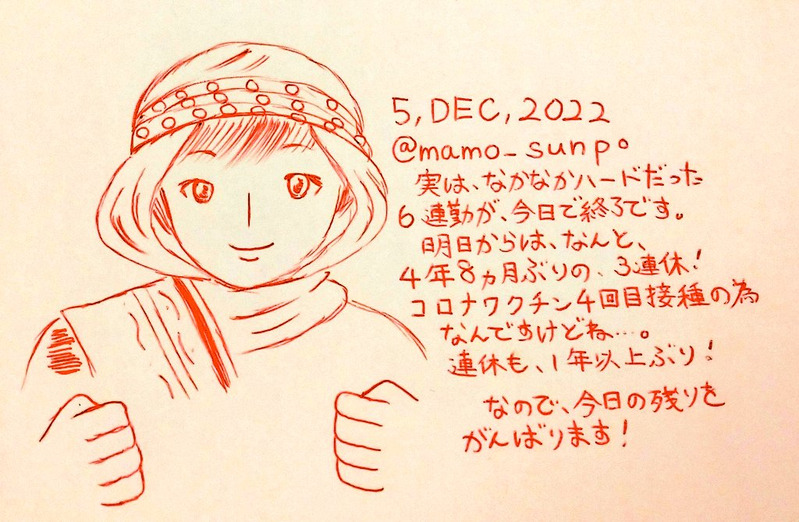 5, DEC, 2022
@mamo_sunp°
実は、なかなかハードだった
6連勤が、今日で終了です。
明日からは、なんと、
4年8ヵ月ぶりの、3連休!
コロナワクチン4回目接種の為
なんですけどね…。
連休も、1年以上ぶり!
なので、今日の残りを
がんばります!